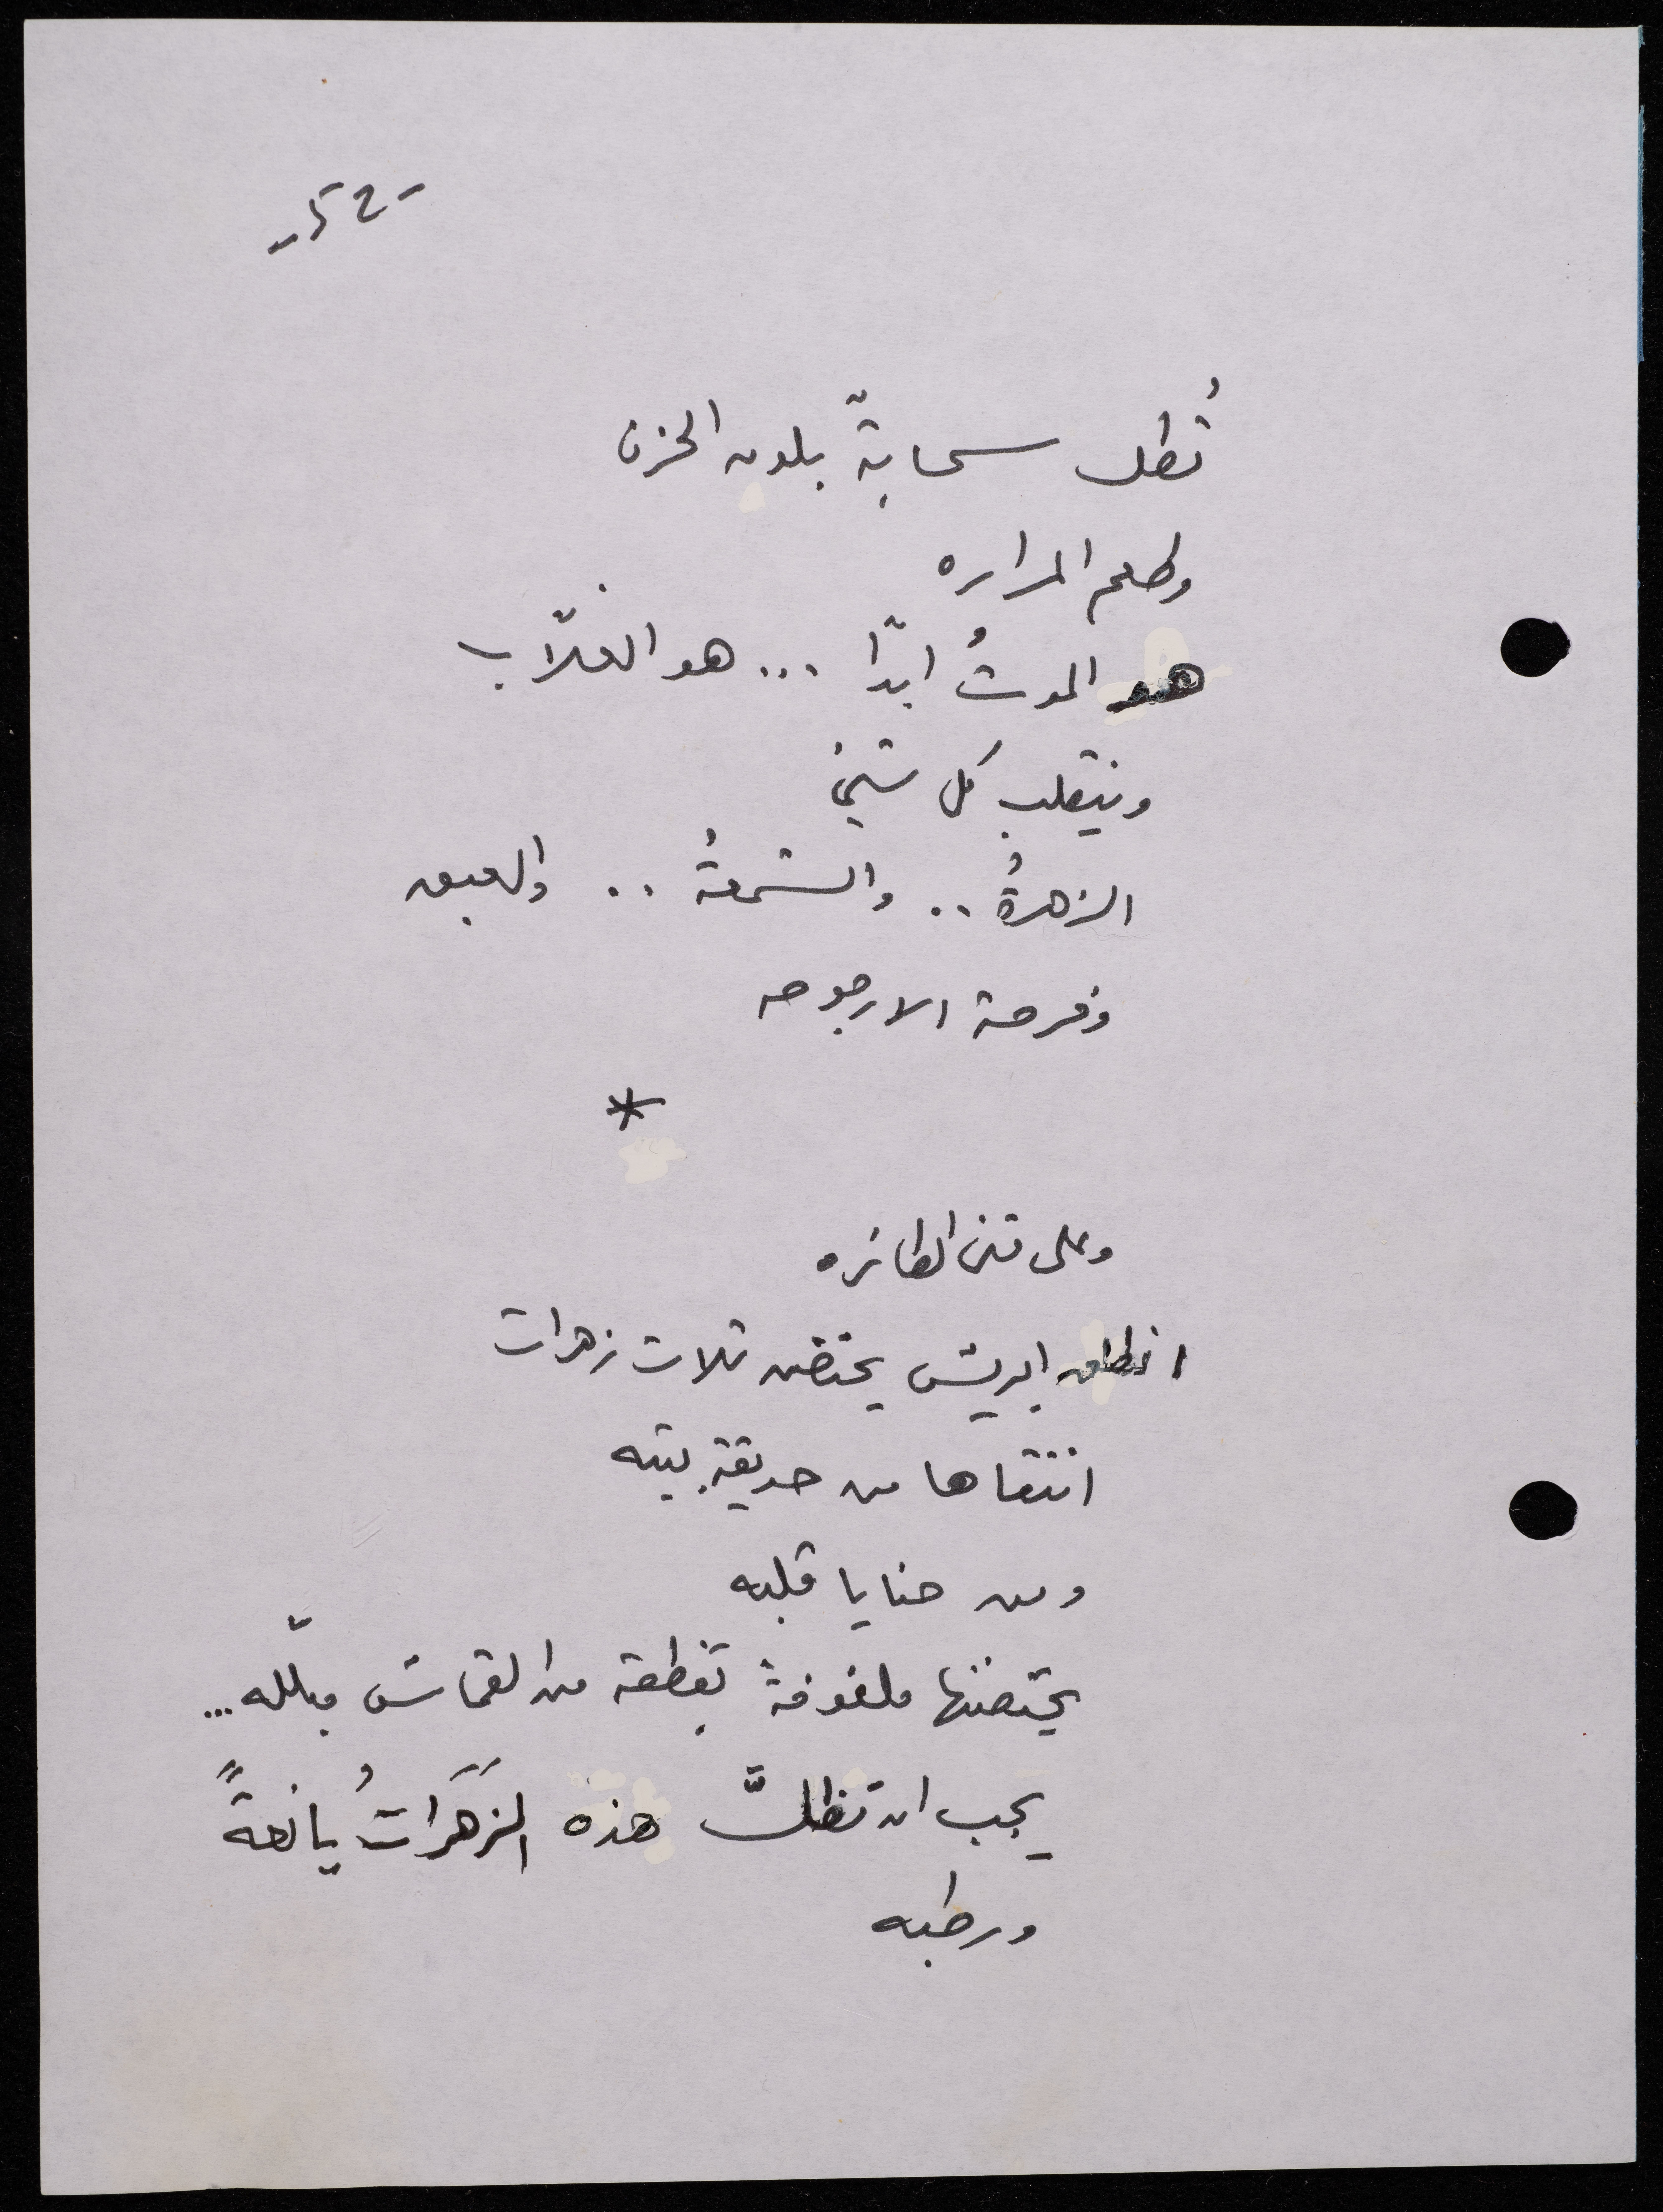 تُطل سحابةٌ بلون الحزن
وطعم المراره
هو الموتُ ابدًا ... هو الغلّاب
وينقلب كل شيئ
الزهرةُ .. والشمعةُ .. والعبق
وفرحة الارجوحه
*
وعلى متن الطائره
انطلق ابريش يحتضن ثلاث زهرات
انتقاها من حديقة بيته
ومن حنايا قلبه
يحتضنها ملفوفةً بقطعة من القماش مبلّله...
يجب ان تظلَّ هذه الزَهَرَاتُ يانعةً
ورطبه